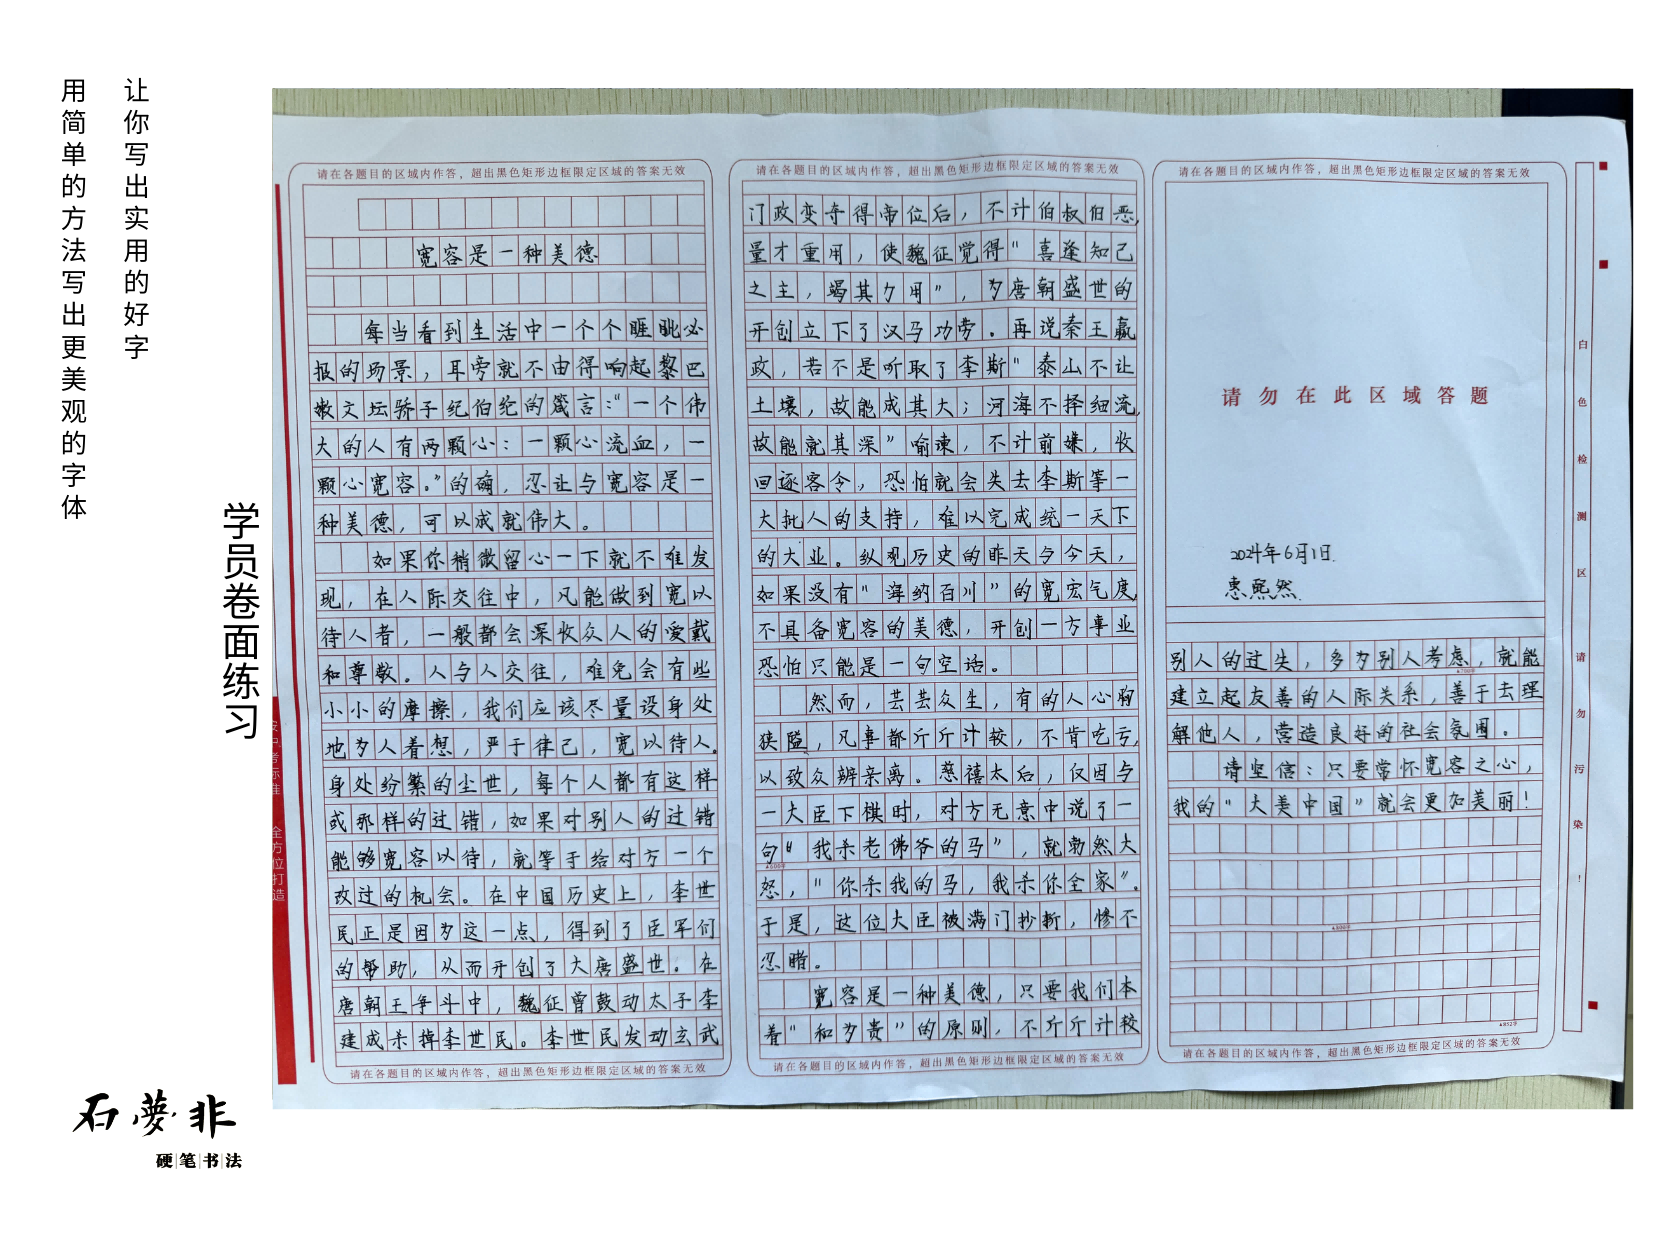 让你写出实用的好字
用简单的方法写出更美观的字体
学员卷面练习
石夢非
硬笔书法
请在各题目的区域内作答，超出黑色矩形边框限定区域的答案无效
宽容是一种美德
每当看到生活中一个个睚眦必
报的场景，耳旁就不由得响起黎巴
嫩文坛骄子纪伯伦的箴言：“一个伟
大的人有两颗心：一颗心流血，一
颗心宽容。”的确，忍让与宽容是一
种美德，可以成就伟大。
如果你稍微留心一下就不难发
现，在人际交往中，凡能做到宽以
待人者，一般都会深收众人的爱戴
和尊敬。人与人交往，难免会有些
小小的摩擦，我们应该尽量设身处
地为人着想，严于律己，宽以待人。
身处纷繁的尘世，每个人都有这样
或那样的过错，如果对别人的过错
能够宽容以待，就等于给对方一个
改过的机会。在中国历史上，李世
民正是因为这一点，得到了臣军们
的帮助，从而开创了大唐盛世。在
唐朝王争斗中，魏征曾鼓动太子李
建成杀掉李世民。李世民发动玄武
请在各题目的区域内作答，超出黑色矩形边框限定区域的答案无效
请在各题目的区域内作答，超出黑色矩形边框限定区域的答案无效
门政变夺得帝位后，不计伯叔旧恶，
量才重用，使魏征觉得“喜逢知己
之主，竭其力用”，为唐朝盛世的
开创立下了汉马功劳。再说秦王赢
政，若不是听取了李斯“泰山不让
土壤，故能成其大；河海不择细流，
故能就其深”喻谏，不计前嫌，收
回逐客令，恐怕就会失去李斯等一
大批人的支持，难以完成统一天下
的大业。纵观历史的昨天与今天，
如果没有“海纳百川”的宽宏气度，
不具备宽容的美德，开创一方事业
恐怕只能是一句空话。
然而，芸芸众生，有的人心胸
狭隘，凡事都斤斤计较，不肯吃亏，
以致众辨亲离。慈禧太后，仅因与
一大臣下棋时，对方无意中说了一
句“我杀老佛爷的马”，就勃然大
怒，“你杀我的马，我杀你全家”。
于是，这位大臣被满门抄斩，惨不
忍睹。
宽容是一种美德，只要我们本
着“和为贵”的原则，不斤斤计较
请在各题目的区域内作答，超出黑色矩形边框限定区域的答案无效
请在各题目的区域内作答，超出黑色矩形边框限定区域的答案无效
请勿在此区域答题
2024年6月1日.
惠熙然.
别人的过失，多为别人考虑，就能
建立起友善的人际关系，善于去理
解他人，营造良好的社会氛围。
请坚信：只要常怀宽容之心，
我的“大美中国”就会更加美丽！
请在各题目的区域内作答，超出黑色矩形边框限定区域的答案无效
白色检测区请勿污染！
全方位打造